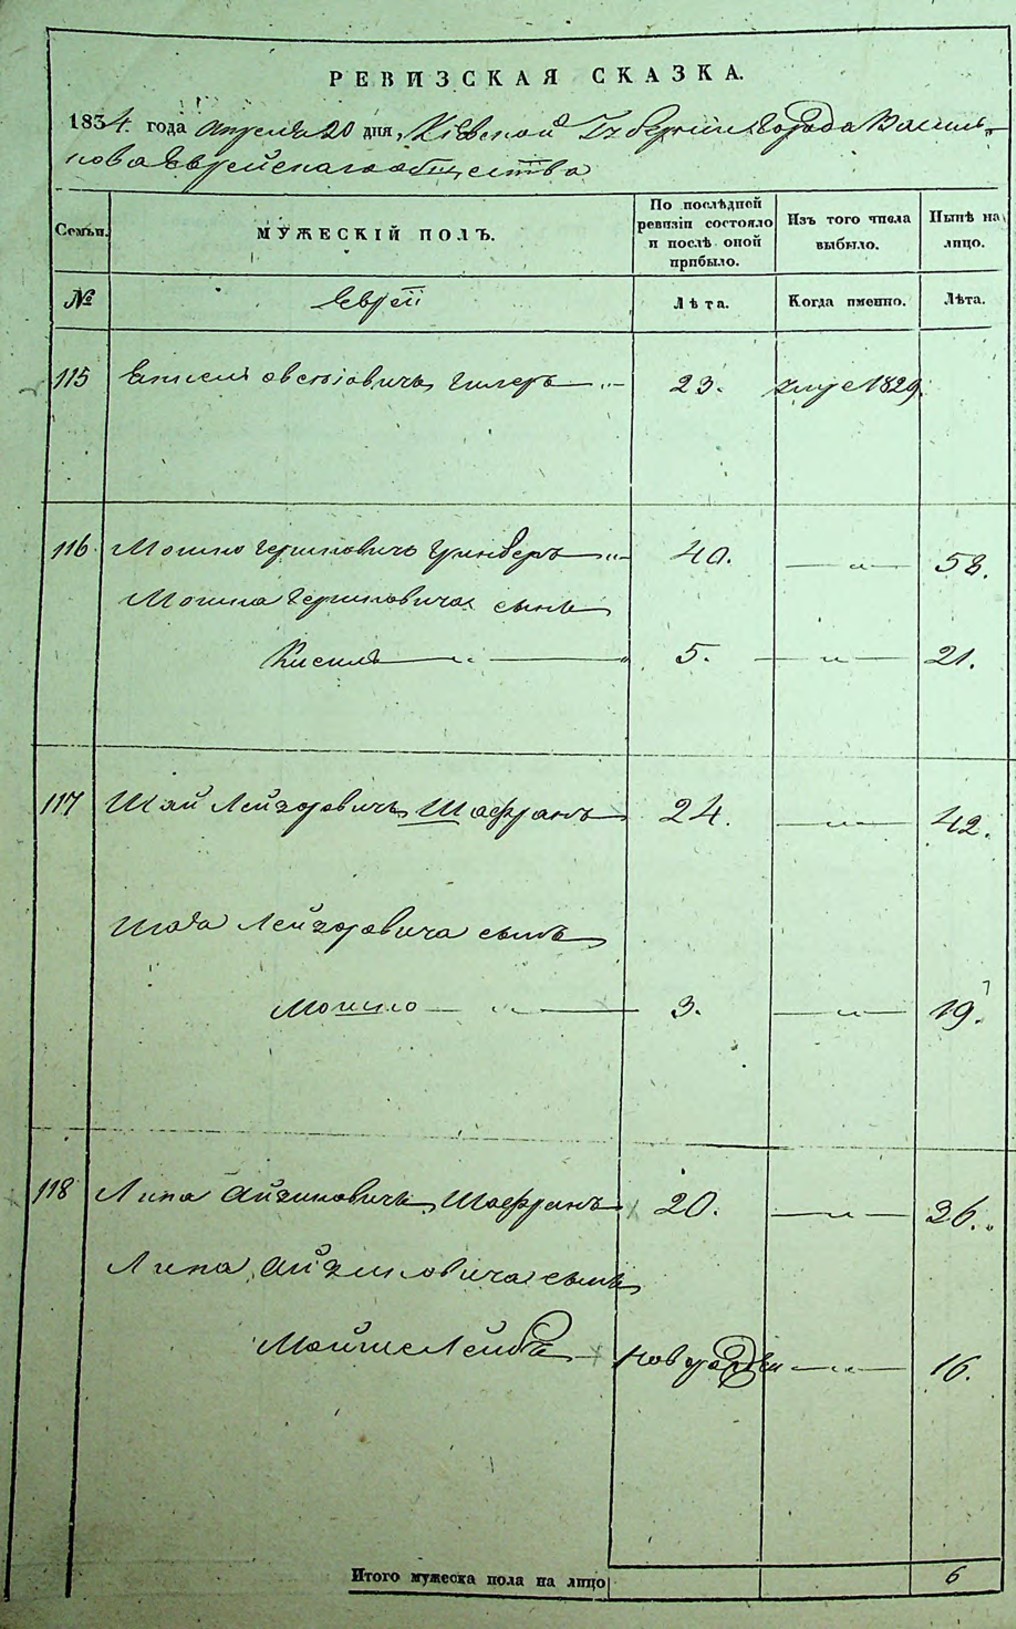 РЕВИЗСКАЯ СКАЗКА.
1834. года Апреля 20 дня, Кіевской Губерніи Города Василь-
кова Еврейскаго общества
Семьи.
МУЖЕСКІЙ ПОЛЪ.
По послѣдней
ревизіи состояло
и послѣ оной
прибыло.
Изъ того числа
выбыло.
Нынѣ на
лицо.
№
Евреи
Лѣта.
Когда именно.
Лѣта.
115 Овсіовичъ 23. 1829.
116 Мошко Гершковичъ Гринберъ 40. — „ — 58.
Мошка Гершковича сынъ
Кисиль — „ — 5. — „ — 21.
117 Шай Лейзоровичъ Шафранъ 24. — „ — 42.
Шая Лейзоровича сынъ
Мошко — „ — 3. — „ — 19.
118 Липа Айзиковичъ Шафранъ 20. — „ — 36.
Липа Айзиковича сынъ
Мойше Лейба — — „ — 16.
Итого мужеска пола на лицо 6